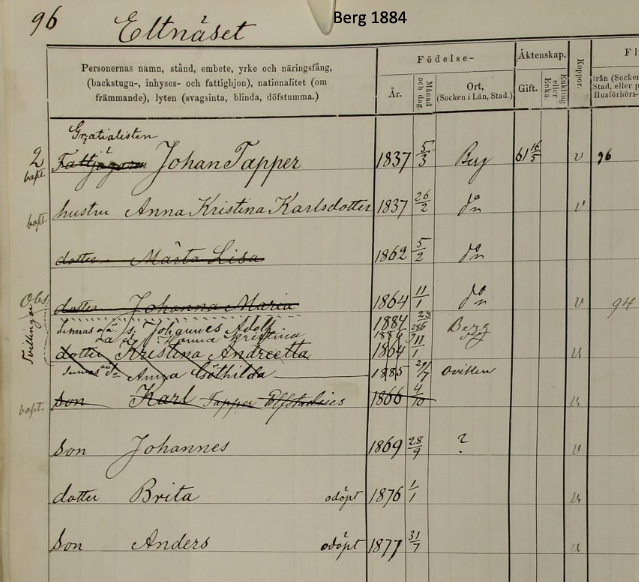 96 Eltnäset Berg 1884
Personernas namn, stånd, embete, yrke och näringsfång,
(backstugu-, inhyses- och fattighjon), nationalitet (om
främmande), lyten (svagsinta, blinda, döfstumma).
Födelse-
År. Månad och dag. Ort, (Socken i Län, Stad.)
Äktenskap.
Gift. Enkling eller Enka.
Koppor.
från (Socken
Stad, eller p
Husförhörs-
Gratialisten
2 Johan Tapper 1837 5/3 Berg 61 16/5 v 96
bapt.
hustru Anna Kristina Karlsdotter 1837 26/2 dn v
bapt.
dotter Märta Lisa 1862 5/2 dn
Obs. dotter Johanna Maria 1864 11/1 dn v 94
Tvillingar
dennas oä. s. Johannes Adolf 1884 Berg
Hanna Kristina
dotter Kristina Andreetta 1864 11/1 v
dennas oä. d. Anna Göthilda 1885 21/7 Oviken
bapt. son Karl Tapper 1866 4/10 v
son Johannes 1869 28/9 ? v
dotter Brita odöpt 1876 1/1 v
son Anders odöpt 1877 31/7 v